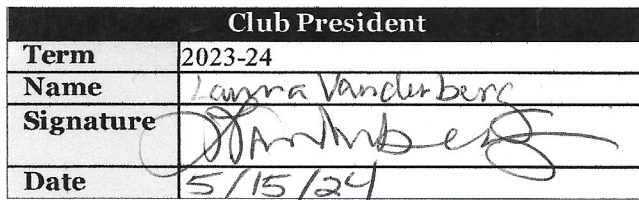 Club President
Term 2023-24
Name Vanderberg
Signature
Date 5/15/24